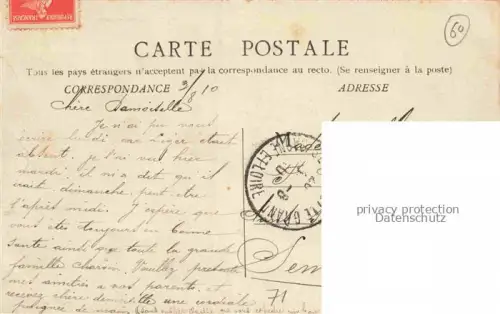 60
CARTE POSTALE
Tous les pays étrangers n'acceptent pas la correspondance au recto. (Se renseigner à la poste)
CORRESPONDANCE
ADRESSE
3/8 10
Chère Damoiselle
Je n'ai pu vous
écrire lundi car Liger était
absent. je l'ai vu hier
mardi. Il m'a dit qu'il
irait dimanche peut être
l'après midi. J'espère que
vous êtes toujours en bonne
santé ainsi que toute la grande
famille Charon. Veuillez
mes amitiés à vos parents. et
recevez chère demoiselle une cordiale
poignée de main
ET-LOIRE
GRAN
privacy protection
Datenschutz
71